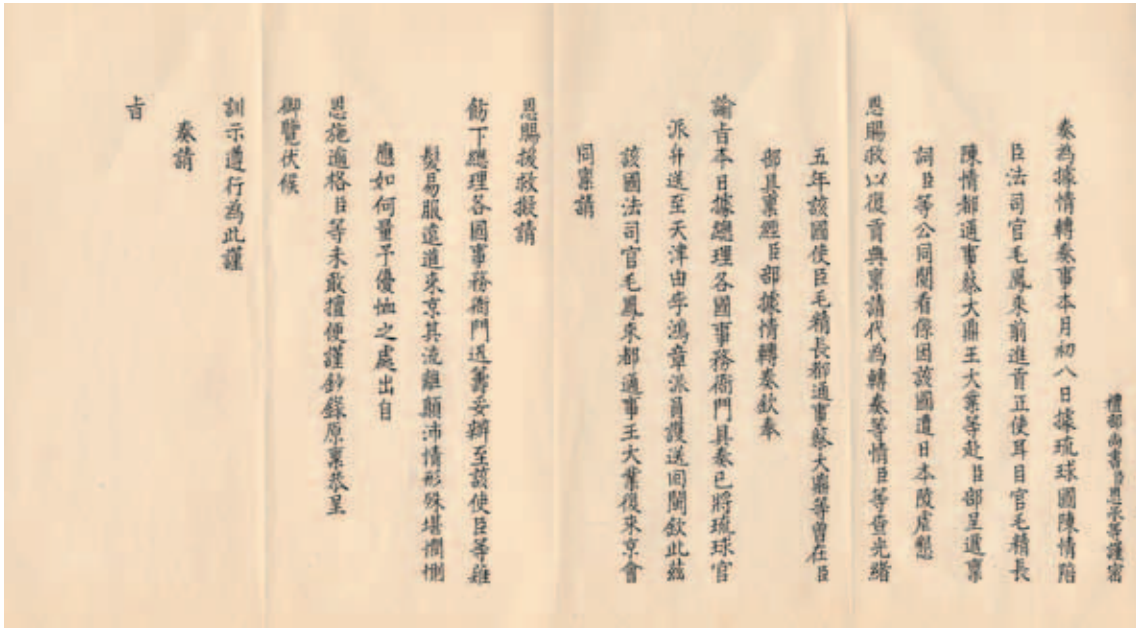 禮部尚書臣恩承等謹
奏為據情轉奏事本月初八日據琉球國陳情陪
臣法司官毛鳳來前進貢正使耳目官毛精長
陳情都通事蔡大鼎王大業等赴臣部呈遞稟
詞臣等公同閱看係因該國遭日本陵虐懇
恩賜救以復貢典稟請代為轉奏等情臣等查光緒
五年該國使臣毛精長都通事蔡大鼎等曾在臣
部具稟經臣部據情轉奏欽奉
諭旨本日據總理各國事務衙門具奏已將琉球官
派弁送至天津由李鴻章派員護送回閩欽此茲
該國法司官毛鳳來都通事王大業復來京會
同稟請
恩賜援救擬請
飭下總理各國事務衙門迅籌妥辦至該使臣等薙
髮易服遠道來京其流離顛沛情形殊堪憫惻
應如何量予優恤之處出自
恩施逾格臣等未敢擅便謹鈔錄原稟恭呈
御覽伏候
訓示遵行為此謹
奏請
旨